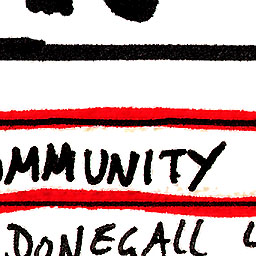 OMMUNITY
DONEGALL L